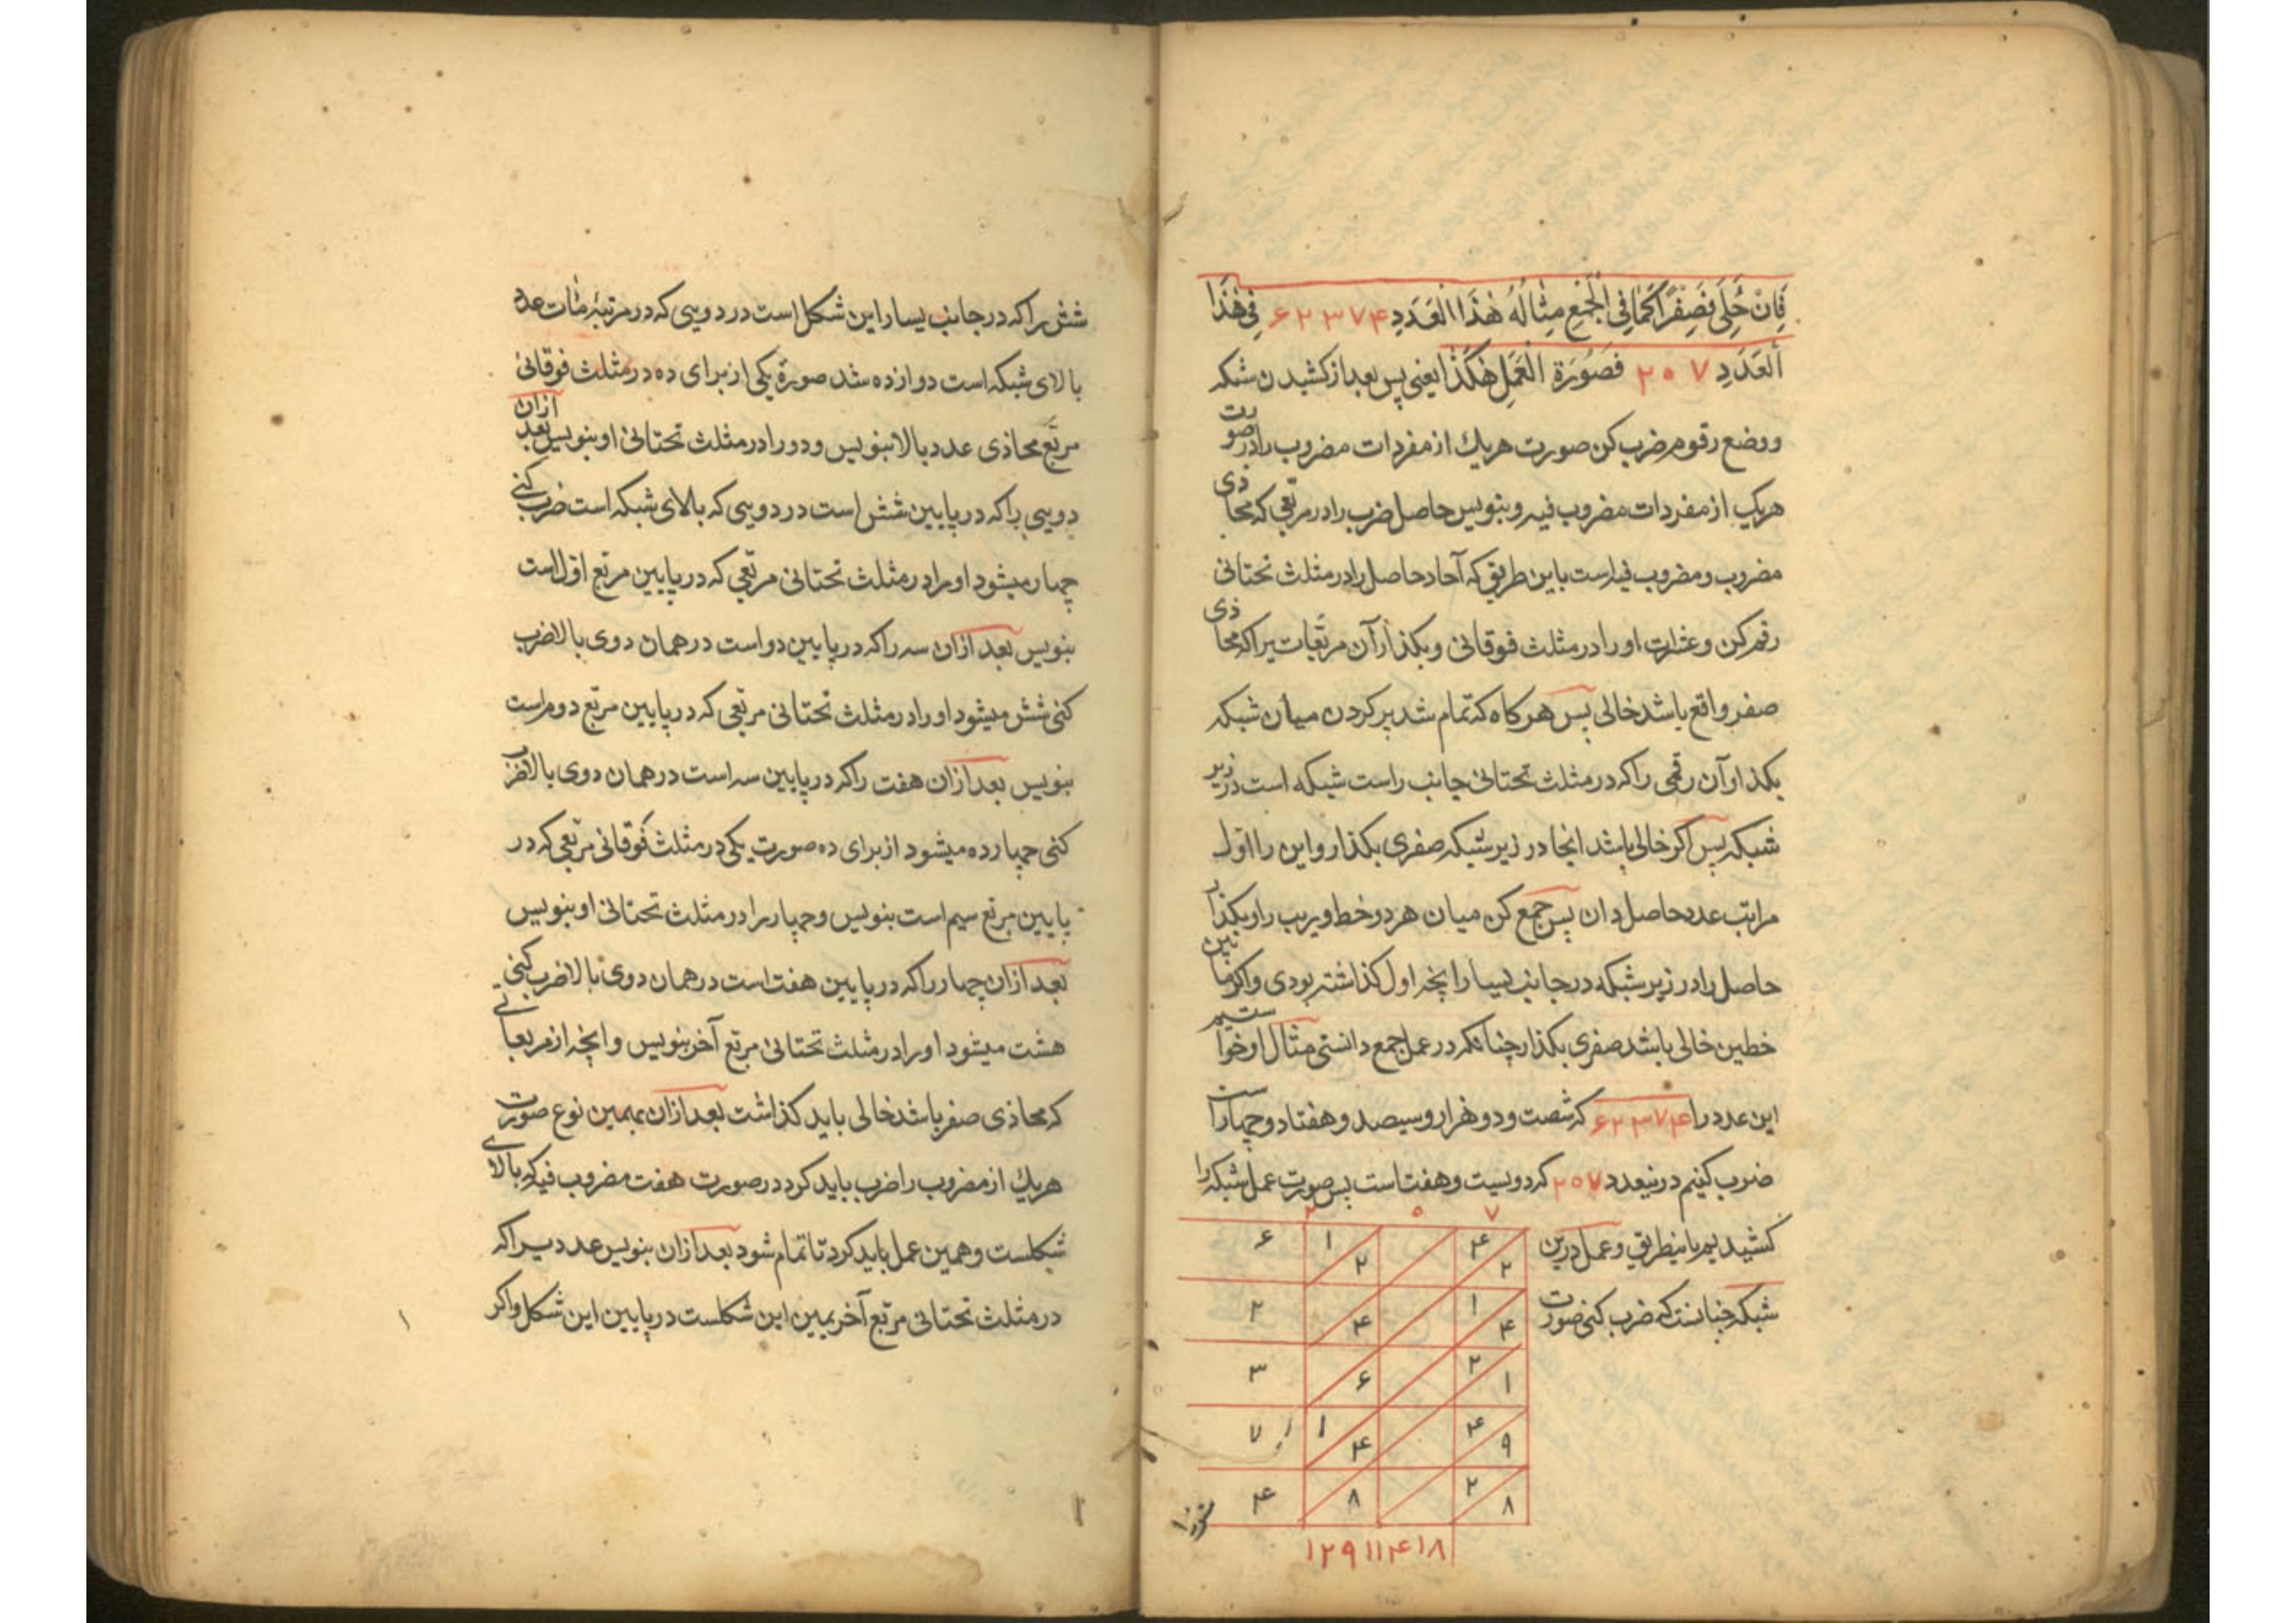 فَاِنْ خُلِّیَ فَصِفْرًا کَمَا فِی الْجَمْعِ مِثَالُهُ هٰذَا الْعَدَدِ ۶۲۳۷۴ فِی هٰذَا
اَلْعَدَدِ ۲۰۷ فَصُورَة الْعَمَلِ هٰکَذَا یعنی پس بعد از کشیدن شبکه
ووضع رقوم ضرب کن صورت هریك از مفردات مضروب را در صورت
هریک از مفردات مضروب فیه و بنویس حاصل ضرب را در مربّعی که محاذی
مضروب و مضروب فیه است باین طریق که آحاد حاصل را در مثلث تحتانی
رقم کن و عشرات او را در مثلث فوقانی و بکذار آن مربّعات یرا که محاذی
صفر واقع باشد خالی پس هرکاه که تمام شد پر کردن میان شبکه
بکذار آن رقمی را که در مثلث تحتانی جانب راست شبکه است در زیر
شبکه پس اکر خالی باشد انجا در زیر شبکه صفری بکذار و این را اوّل
مراتب عدد حاصل دان پس جمع کن میان هر دو خط وریب را و بکذار
حاصل را در زیر شبکه در جانب یسار انچه اول کذاشته بودی واکر مابین
خطین خالی باشد صفری بکذار چنانکه در عمل جمع دانستی مثال او خواستیم
این عدد را ۶۲۳۷۴ که شصت و دو هزار و سیصد و هفتاد و چهار است
ضرب کنیم درینعدد ۲۰۷ که دویست و هفت است پس صورت عمل شبکه را
کشیدیم باینطریق و عمل درین
شبکه چنانست که ضرب کنی صورت
۲ ۰ ۷
۶ ۱ ۲ ۴ ۲
۲ ۴ ۱ ۴
۳ ۶ ۲ ۱
۷ ۱ ۴ ۴ ۹
۴ ۸ ۲ ۸
۱۲۹۱۱۴۱۸
شش را که در جانب یسار این شکل است در دویی که در مرتبهٔ مٔات عدد
بالای شبکه است دوازده شد صورة یکی از برای ده در مثلث فوقانیٔ
مربّع محاذی عدد بالا بنویس و دو را در مثلث تحتانیٔ او بنویس بعد ازان
دویی را که در پایین شش است در دویی که بالای شبکه است ضرب کنی
چهار میشود او را در مثلث تحتانی مربّعی که در پایین مربّع اوّل است
بنویس بعد ازان سه را که در پایین دو است در همان دوی بالا ضرب
کنی شش میشود او را در مثلث تحتانی مربّعی که در پایین مربّع دوم است
بنویس بعد ازان هفت را که در پایین سه است در همان دوی بالا ضرب
کنی چهارده میشود از برای ده صورت یکی در مثلث فوقانی مربّعی که در
پایین مربّع سیم است بنویس و چهار را در مثلث تحتانی او بنویس
بعد ازان چهار را که در پایین هفت است در همان دوی بالا ضرب کنی
هشت میشود او را در مثلث تحتانی مربّع آخر بنویس و انچه از مربعاتی
که محاذی صفر باشد خالی باید کذاشت بعد ازان بهمین نوع صورت
هریك از مضروب را ضرب باید کرد در صورت هفت مضروب فیه که بالای
شکلست و همین عمل باید کرد تا تمام شود بعد ازان بنویس عدد یرا که
در مثلث تحتانی مربّع آخر یمین این شکلست در پایین این شکل واکر